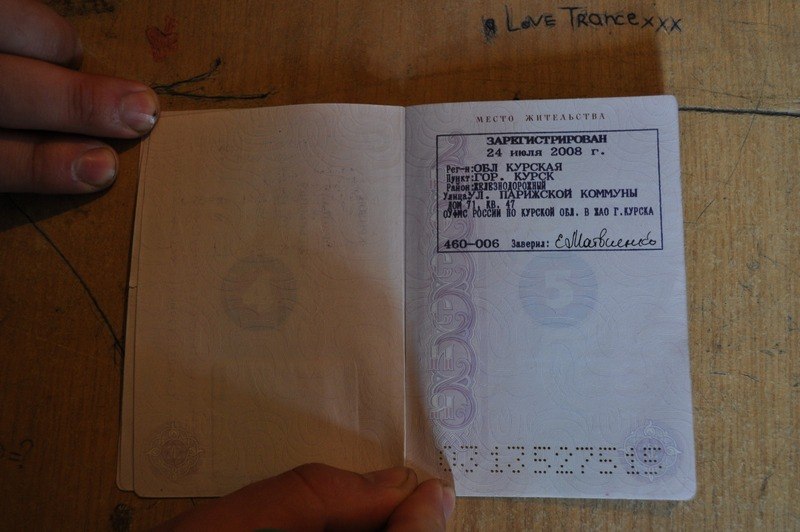 Love Trancexxx
МЕСТО ЖИТЕЛЬСТВА
ЗАРЕГИСТРИРОВАН
24 июля 2008 г.
Рег-н: ОБЛ КУРСКАЯ
Пункт: ГОР. КУРСК
Район: ЖЕЛЕЗНОДОРОЖНЫЙ
Улица: УЛ. ПАРИЖСКОЙ КОММУНЫ
ДОМ 71, КВ. 47
ОУФМС РОССИИ ПО КУРСКОЙ ОБЛ. В ЖАО Г.КУРСКА
460-006 Заверил: Е Матвиенко
4
5